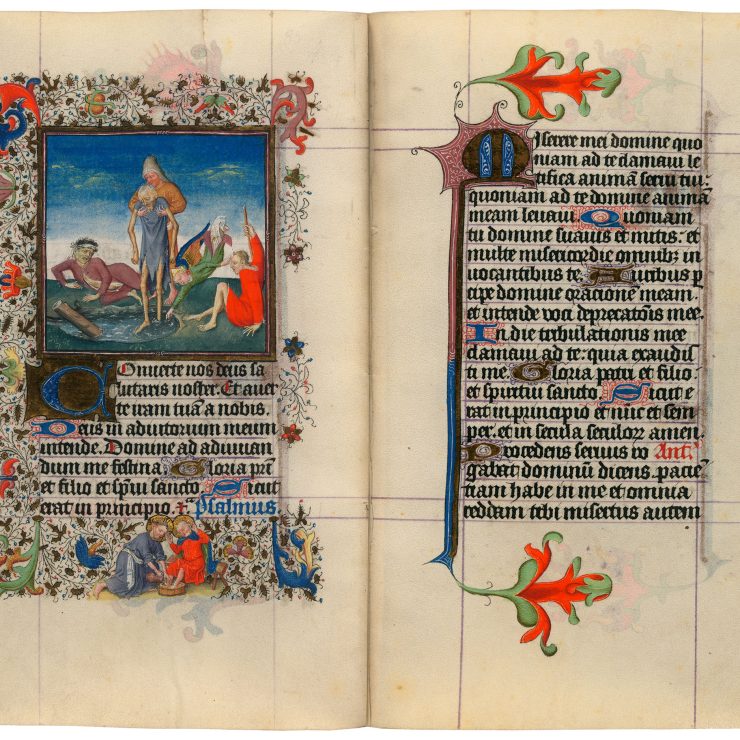 Conuerte nos deus sa
lutaris noster. Et auer
te iram tuā a nobis.
Deus in adiutorium meum
intende. Domine ad adiuuan
dum me festina. Gloria pr̄i
et filio et spūi sancto. Sicut
erat in principio. et̄. Psalmus.
Miserere mei domine quo
niam ad te clamaui le
tifica animā serui tui:
quoniam ad te domine animā
meam leuaui. Quoniam
tu domine suauis et mitis. et
multe misericordie omnibꝫ in
uocantibus te. Auribus p
cipe domine orationē meam.
et intende uoci deprecatōis mee.
In die tribulationis mee
clamaui ad te: quia exaudis
ti me. Gloria patri et filio.
et spiritui sancto. Sicut e
rat in principio et nūc et sem
per. et in secula seculoꝝ amen.
Procedens seruus ro Ant.
gabat dominū dicens. pacien
tiam habe in me et omnia
reddam tibi misertus autem